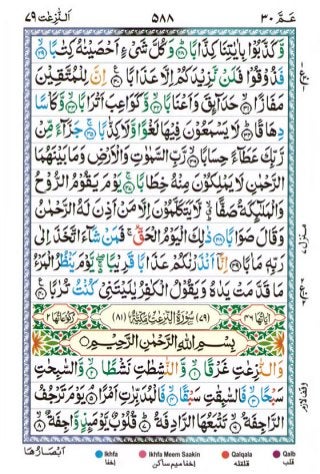 عـمّ ٣٠ ٥٨٨ النّٰزعٰت ٧٩
وَّكَذَّبُوْا بِاٰيٰتِنَا كِذَّابًا ۞ وَكُلَّ شَيْءٍ اَحْصَيْنٰهُ كِتٰبًا ۞
فَذُوْقُوْا فَلَنْ نَّزِيْدَكُمْ اِلَّا عَذَابًا ۞ اِنَّ لِلْمُتَّقِيْنَ
مَفَازًا ۞ حَدَآئِقَ وَاَعْنَابًا ۞ وَّكَوَاعِبَ اَتْرَابًا ۞ وَّكَاْسًا
دِهَاقًا ۞ لَا يَسْمَعُوْنَ فِيْهَا لَغْوًا وَّلَا كِذّٰبًا ۞ جَزَآءً مِّنْ
رَّبِّكَ عَطَآءً حِسَابًا ۞ رَّبِّ السَّمٰوٰتِ وَالْاَرْضِ وَمَا بَيْنَهُمَا
الرَّحْمٰنِ لَا يَمْلِكُوْنَ مِنْهُ خِطَابًا ۞ يَوْمَ يَقُوْمُ الرُّوْحُ
وَالْمَلٰٓئِكَةُ صَفًّا لَّا يَتَكَلَّمُوْنَ اِلَّا مَنْ اَذِنَ لَهُ الرَّحْمٰنُ
وَقَالَ صَوَابًا ۞ ذٰلِكَ الْيَوْمُ الْحَقُّ فَمَنْ شَآءَ اتَّخَذَ اِلٰى
رَبِّهٖ مَاٰبًا ۞ اِنَّآ اَنْذَرْنٰكُمْ عَذَابًا قَرِيْبًا يَّوْمَ يَنْظُرُ الْمَرْءُ
مَا قَدَّمَتْ يَدٰهُ وَيَقُوْلُ الْكٰفِرُ يٰلَيْتَنِيْ كُنْتُ تُرٰبًا ۞
اٰيَاتُهَا ٤٦ (٧٩) سُوْرَةُ النّٰزِعٰتِ مَكِّيَّةٌ (٨١) رُكُوْعَاتُهَا ٢
بِسْمِ اللهِ الرَّحْمٰنِ الرَّحِيْمِ
وَالنّٰزِعٰتِ غَرْقًا ۞ وَّالنّٰشِطٰتِ نَشْطًا ۞ وَّالسّٰبِحٰتِ
سَبْحًا ۞ فَالسّٰبِقٰتِ سَبْقًا ۞ فَالْمُدَبِّرٰتِ اَمْرًا ۞ يَوْمَ تَرْجُفُ
الرَّاجِفَةُ ۞ تَتْبَعُهَا الرَّادِفَةُ ۞ قُلُوْبٌ يَّوْمَئِذٍ وَّاجِفَةٌ ۞
اَبْصَارُهَا
Ikhfa Ikhfa Meem Saakin Qalqala Qalb
اخفا اخفا میم ساکن قلقله قلب